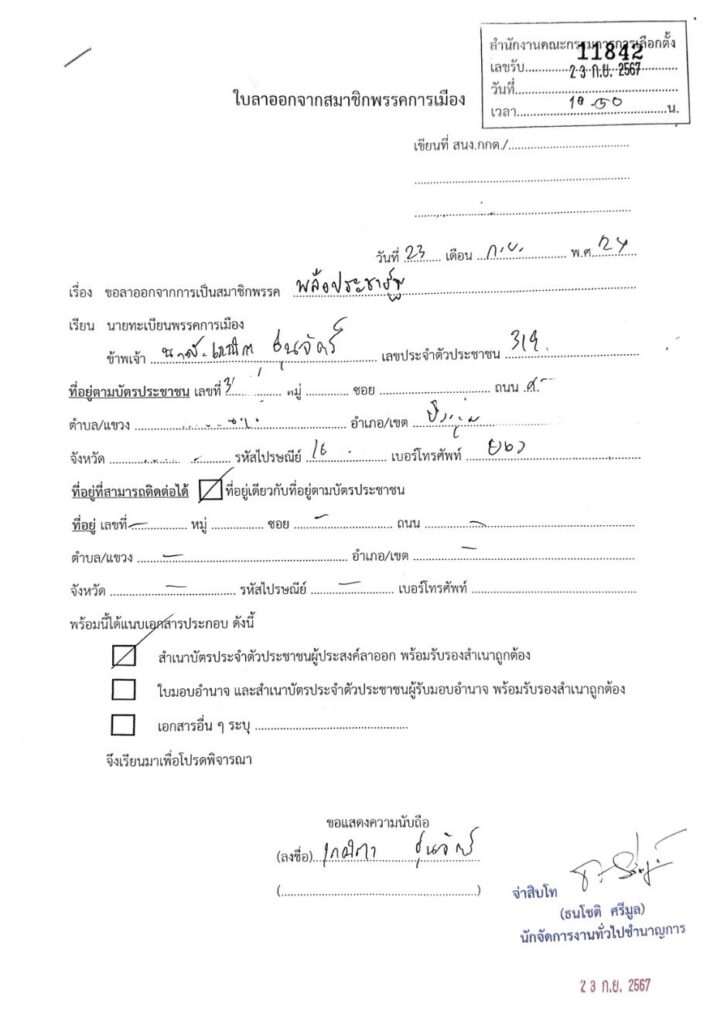 สำนักงานคณะกรรมการการเลือกตั้ง
11842
เลขรับ
23 ก.ย. 2567
วันที่
เวลา น.
ใบลาออกจากสมาชิกพรรคการเมือง
เขียนที่ สนง.กกต./
วันที่ 23 เดือน ก.ย. พ.ศ.
เรื่อง ขอลาออกจากการเป็นสมาชิกพรรค พลังประชารัฐ
เรียน นายทะเบียนพรรคการเมือง
ข้าพเจ้า เลขประจำตัวประชาชน 319
ที่อยู่ตามบัตรประชาชน เลขที่ หมู่ ซอย ถนน
ตำบล/แขวง อำเภอ/เขต
จังหวัด รหัสไปรษณีย์ เบอร์โทรศัพท์
ที่อยู่ที่สามารถติดต่อได้ ที่อยู่เดียวกับที่อยู่ตามบัตรประชาชน
ที่อยู่ เลขที่ - หมู่ ซอย - ถนน -
ตำบล/แขวง - อำเภอ/เขต -
จังหวัด - รหัสไปรษณีย์ - เบอร์โทรศัพท์
พร้อมนี้ได้แนบเอกสารประกอบ ดังนี้
สำเนาบัตรประจำตัวประชาชนผู้ประสงค์ลาออก พร้อมรับรองสำเนาถูกต้อง
ใบมอบอำนาจ และสำเนาบัตรประจำตัวประชาชนผู้รับมอบอำนาจ พร้อมรับรองสำเนาถูกต้อง
เอกสารอื่น ๆ ระบุ
จึงเรียนมาเพื่อโปรดพิจารณา
ขอแสดงความนับถือ
(ลงชื่อ)
จ่าสิบโท
(ธนโชติ ศรีมูล)
นักจัดการงานทั่วไปชำนาญการ
23 ก.ย. 2567